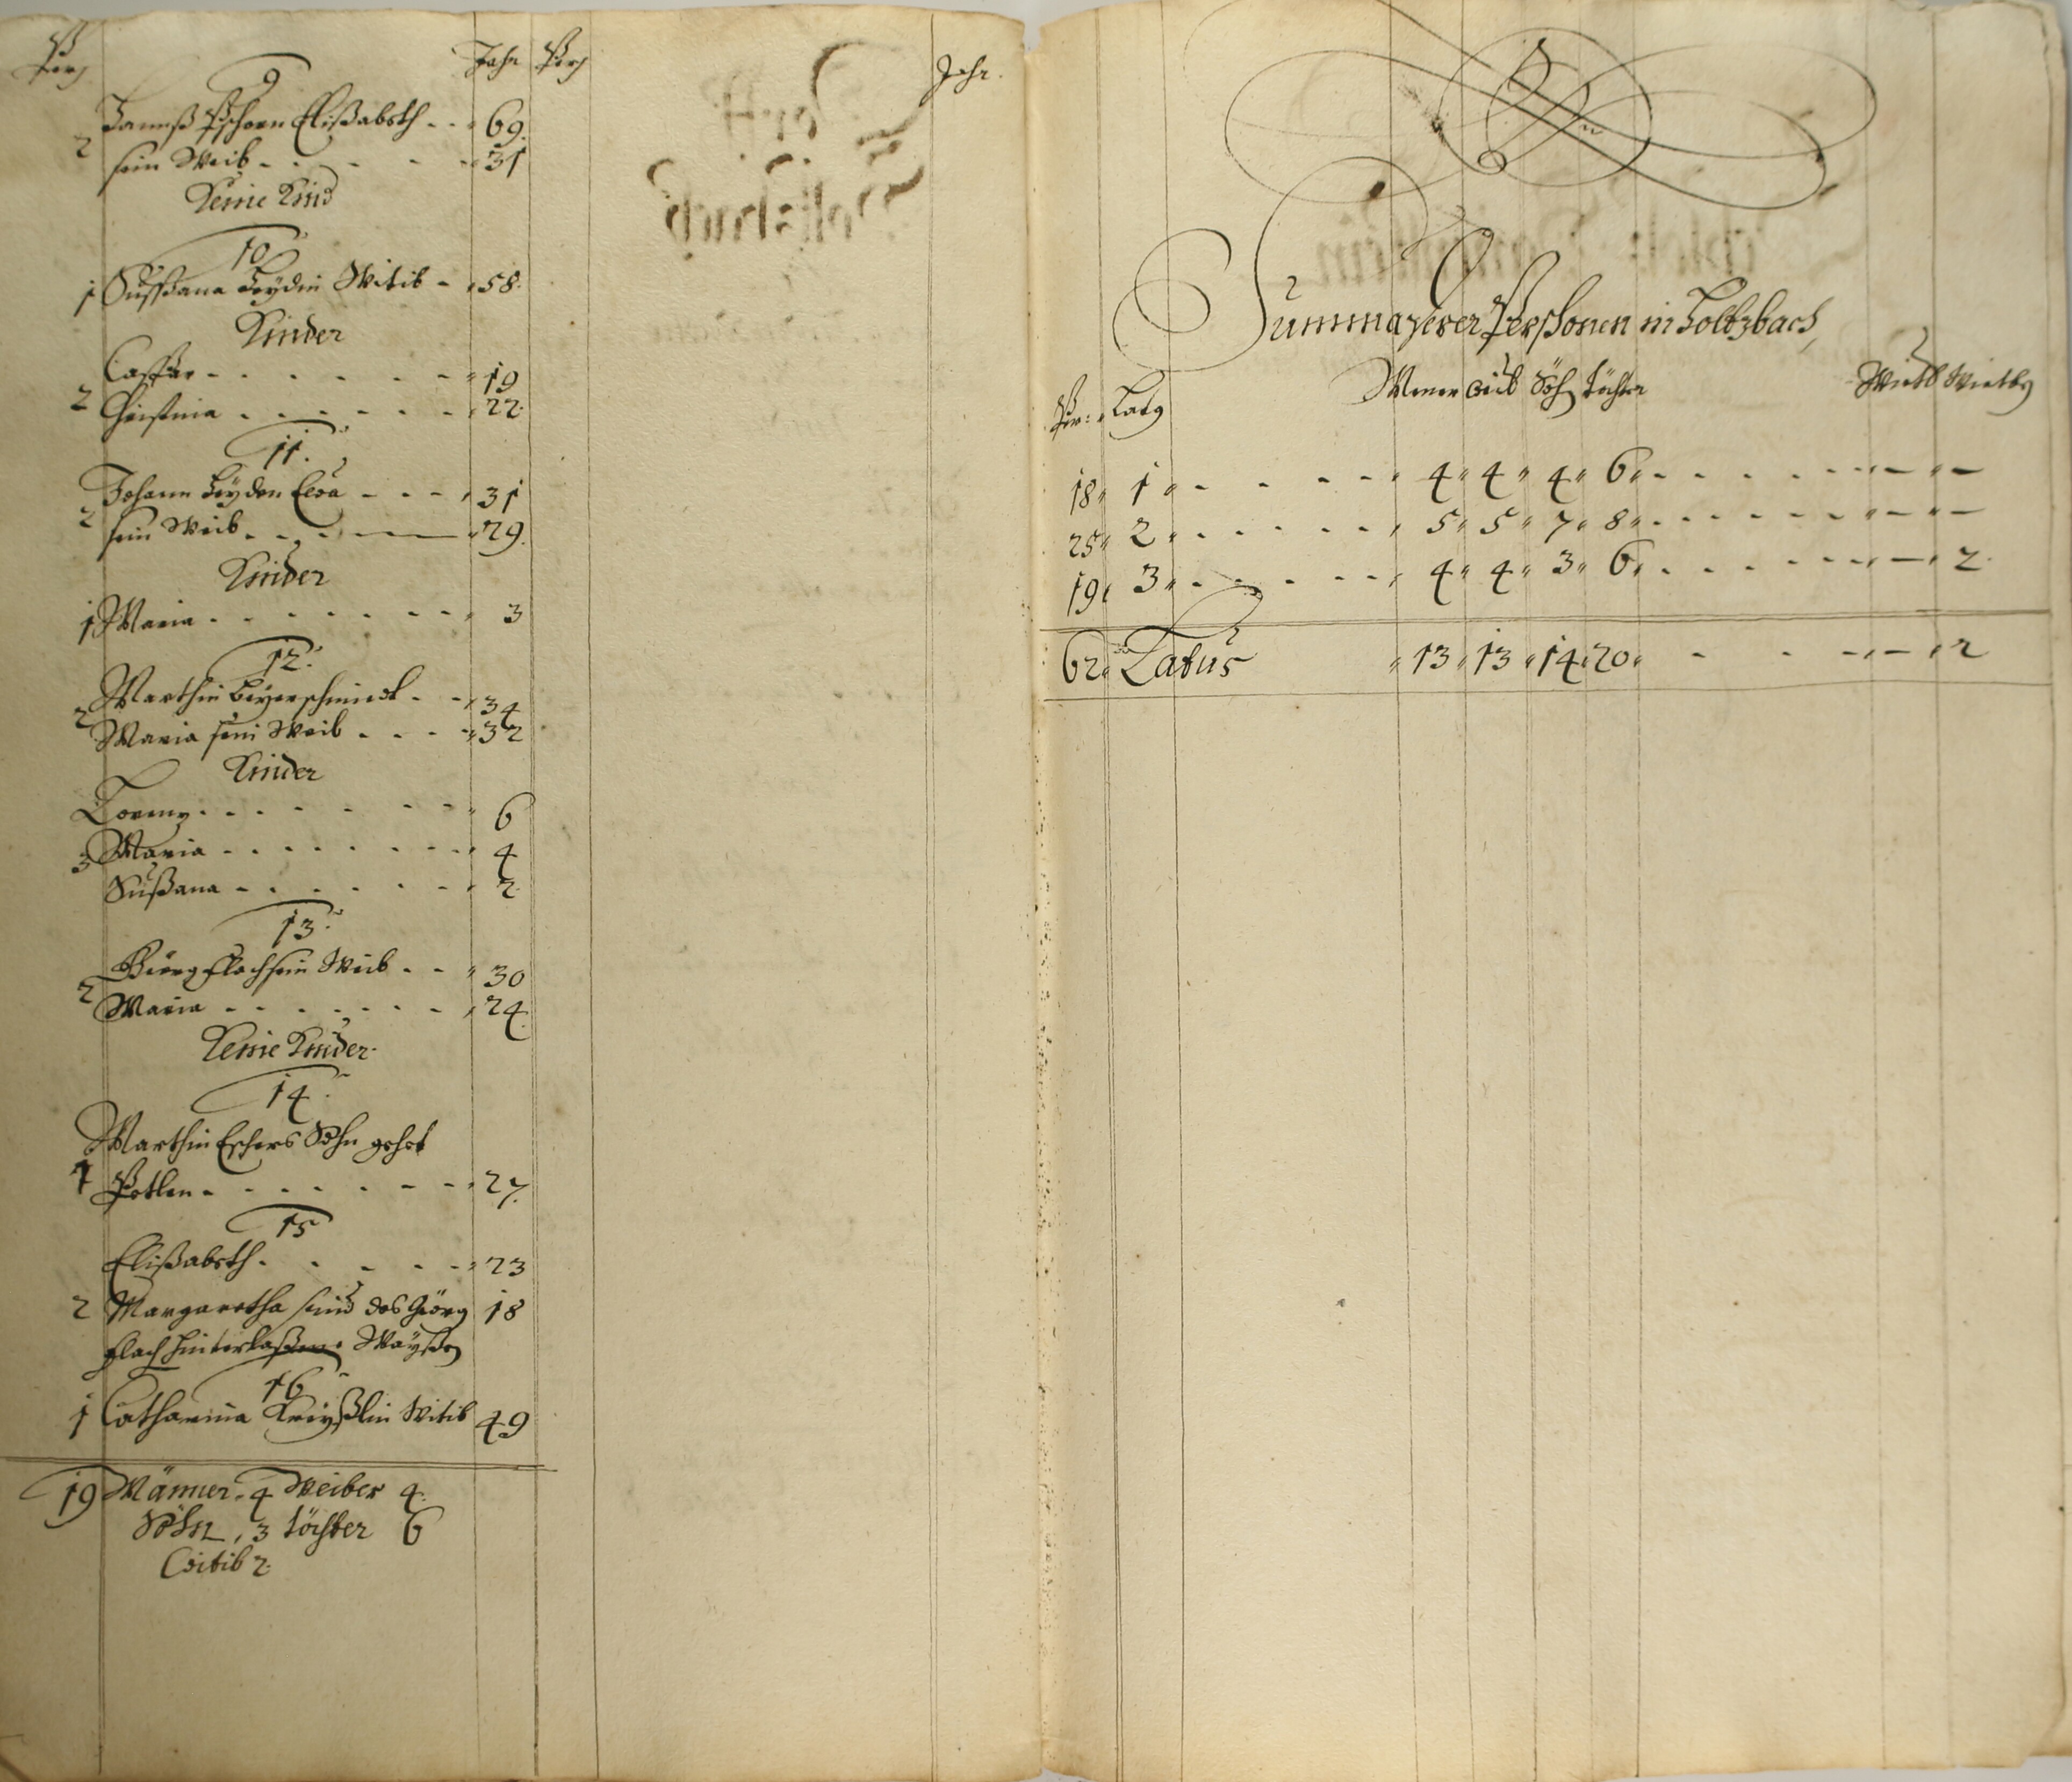 Pers Jahr Pers Jahr.
9
Hannß Pschorn Elißabeth - - - 69.
2 sein Weib - - - - - 31
Keine Kind
10
1 Sußßana Heÿdin Witib - 58.
Kinder
Casspar - - - - - - 19
2 Christina - - - - - - 22.
11.
Johann Heÿden Eva - - - 31
2 sein Weib - - - - 29.
Kinder
1 Maria - - - - - - - 3
12.
Marthin Beÿerschmidt - - 34
2 Maria sein Weib - - - - 32
Kinder
Lorenz - - - - - - 6
3 Maria - - - - - - - - 4
Sußana - - - - - - 2.
13.
Giörg Flach sein Weib - - 30
2 Maria - - - - - - 24.
Keine Kinder.
14.
Marthin Eschers Sohn gehet
1 Betlen - - - - - - - 27.
15
Elißabeth - - - - - 23
2 Margaretha sind des Giörg 18
Flach hinterlaßene Waÿßen
16
1 Catharina Kreÿßlin Witib 49
19 Männer 4 Weiber 4.
Söhn, 3 Töchter 6
Witib 2.
Summa derer Perßonen in Holtzbach,
Per: Latq Mener Weib Söhn Töchter Witb Witbq
18 1 - - - - - 4 4 4 6 - - - - - - -
25 2 - - - - - 5 5 7 8 - - - - - - -
19 3 - - - - - 4 4 3 6 - - - - - - 2.
62 Latus 13 13 14 20 - - - - 2